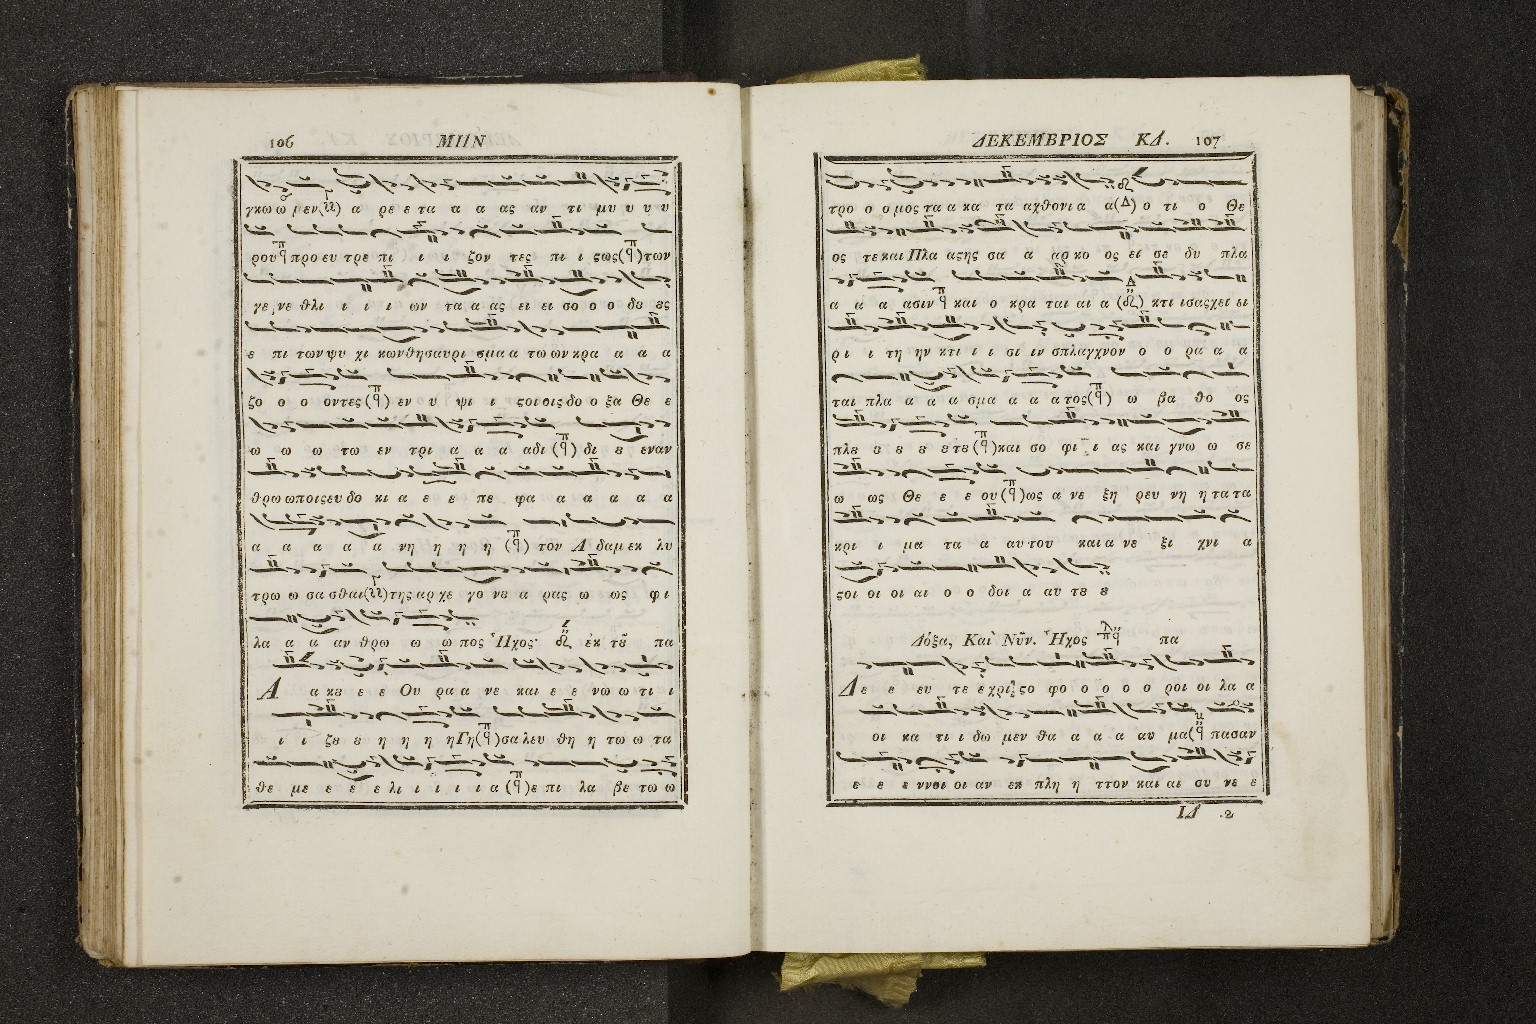 106 ΜΗΝ
γκω ω μεν α ρε ε τα α α ας αν τι μυ υ υ υ
ρου προ ευ τρε πι ι ι ζον τες πι ι ςως των
γε νε θλι ι ι ι ων τα α ας ει ει σο ο ο δȣ ȣς
ε πι των ψυ χι κων θησαυρι σμα α τω ων κρα α α α
ζο ο ο οντες εν υ ψι ι ςοιοις δο ο ξα Θε ε
ω ω ω τω εν τρι α α α αδι δι ȣ εναν
θρω ωποις ευ δο κι α ε ε πε φα α α α α α
α α α α α νη η η η τον Α δαμ εκ λυ
τρω ω σα σθαι της αρ χε γο νȣ α ρας ω ως φι
λα α α αν θρω ω ω πος Ἦχος ἐκ τȣ̃ πα
Α α κȣ ε ε Ου ρα α νε και ε ε νω ω τι ι
ι ι ζȣ ȣ η η η η Γη σα λευ θη η τω ω τα
θε με ε ε ε λι ι ι ι ι α ε πι λα βε τω ω
ΔΕΚΕΜΒΡΙΟΣ ΚΔ. 107
τρο ο ο μος τα α κα τα αχθονι α α (Δ) ο τι ο Θε
ος τε και Πλα αςης σα α αρ κο ος ει σε δυ πλα
α α α ασιν και ο κρα ται αι α κτι ισας χει ει
ρι ι τη ην κτι ι ι σι ιν σπλαγχνον ο ο ρα α α
ται πλα α α α σμα α α ατος ω βα θο ος
πλȣ ȣ ȣ ȣ ȣτȣ και σο φι ι ας και γνω ω σε
ω ως Θε ε ε ου ως α νε ξη ρευ νη η τα τα
κρι ι μα τα α αυτου και α νε ξι χνι α
ςοι οι οι αι ο ο δοι α αυ τȣ ȣ
Δόξα, Καὶ Νῦν. Ἦχος πα
Δε ε ευ τε εχρι ςο φο ο ο ο ο ροι οι λα α
οι κα τι ι δω μεν θα α α α αυ μα πασαν
ε ε ε ννοι οι αν εκ πλη η ττον και αι συ νε ε
ΙΔ 2